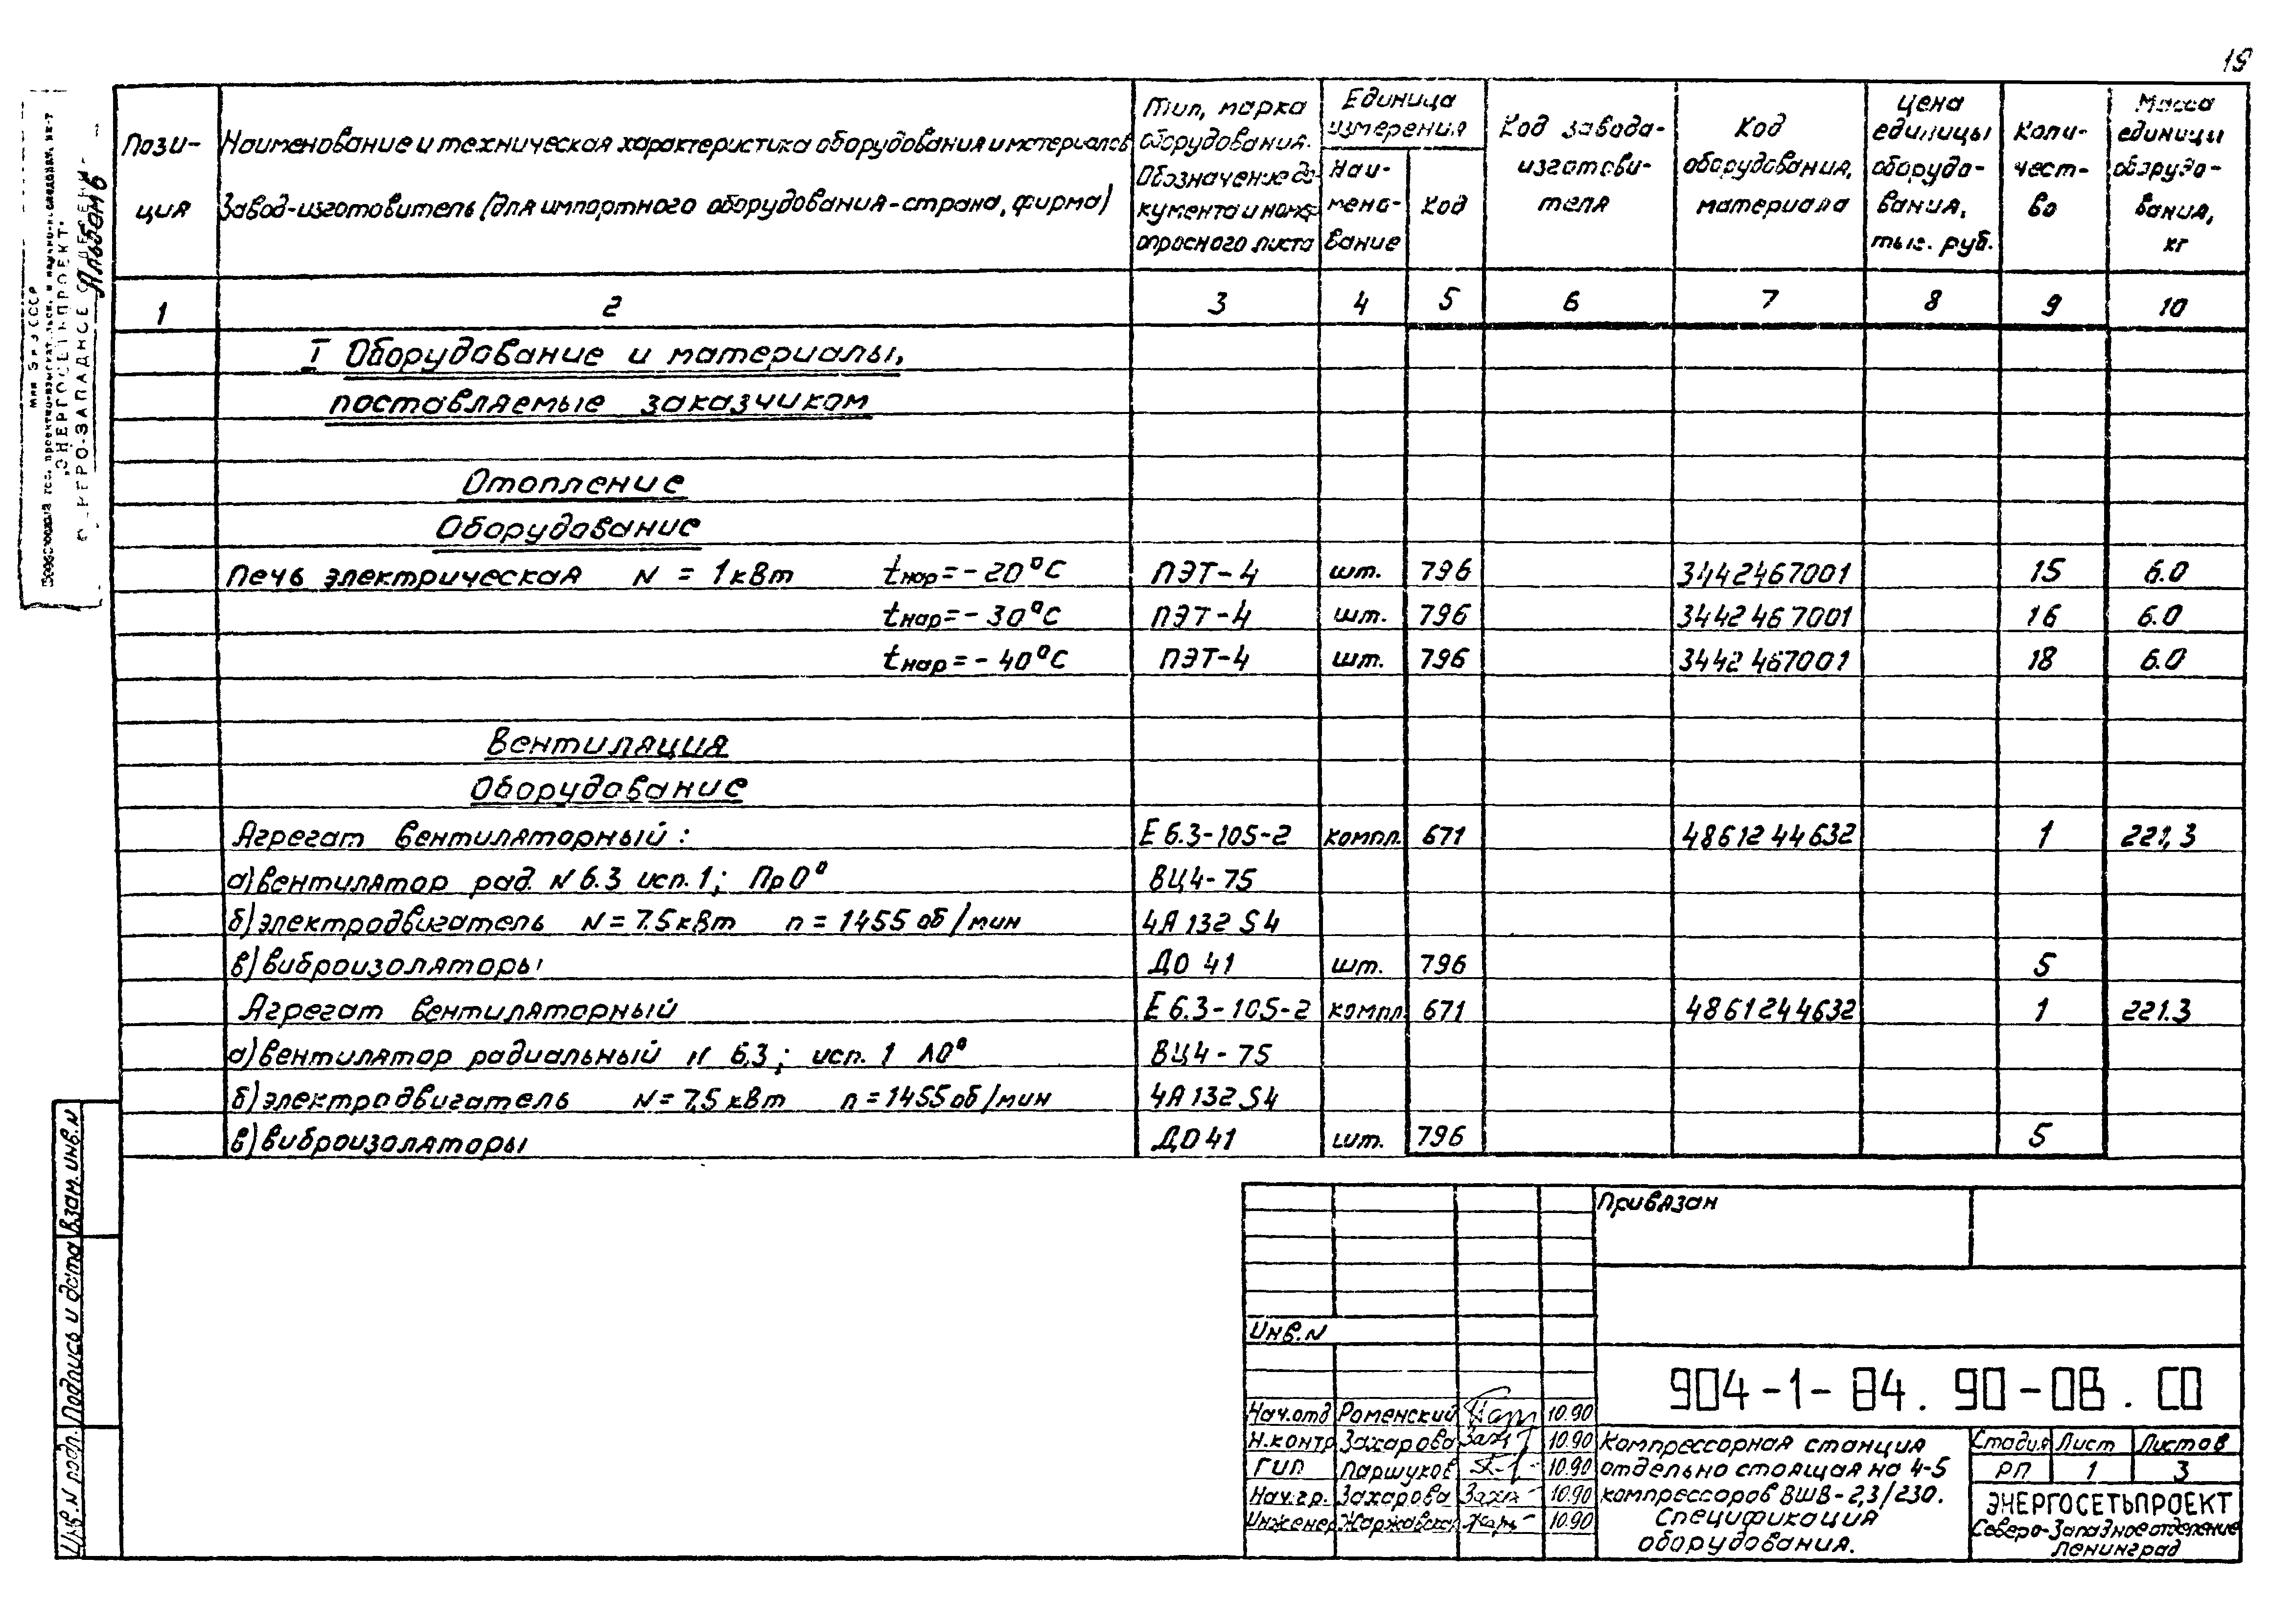 19
Альбом 6
"ЭНЕРГОСЕТЬПРОЕКТ"
Пози-
ция
Наименование и техническая характеристика оборудования и материалов
Завод-изготовитель (для импортного оборудования-страна, фирма)
Тип, марка
оборудования.
Обозначение до-
кумента и номер
опросного листа
Единица
измерения
Наи-
мено-
вание
Код
Код завода-
изготови-
теля
Код
оборудования,
материала
Цена
единицы
оборудо-
вания,
тыс. руб.
Коли-
чест-
во
Масса
единицы
оборудо-
вания,
кг
1 2 3 4 5 6 7 8 9 10
I Оборудование и материалы,
поставляемые заказчиком
Отопление
Оборудование
Печь электрическая N = 1кВт tнар=-20°С ПЭТ-4 шт. 796 3442467001 15 6.0
tнар=-30°С ПЭТ-4 шт. 796 3442467001 16 6.0
tнар=-40°С ПЭТ-4 шт. 796 3442467001 18 6.0
Вентиляция
Оборудование
Агрегат вентиляторный: Е 6.3-105-2 компл. 671 4861244632 1 221,3
а) вентилятор рад. N 6.3 исп. 1; Пр0° ВЦ4-75
б) электродвигатель N=7.5кВт n=1455об/мин 4А132S4
в) виброизоляторы ДО 41 шт. 796 5
Агрегат вентиляторный Е 6.3-105-2 компл. 671 4861244632 1 221.3
а) вентилятор радиальный N 6,3; исп. 1 Л0° ВЦ4-75
б) электродвигатель N=7,5кВт n=1455об/мин 4А132S4
в) виброизоляторы ДО41 шт. 796 5
Взам. инв. N
Подпись и дата
Инв. N подл.
Привязан
Инв. N
904-1-84.90-ОВ.СО
Нач.отд Роменский 10.90
Н.контр Захарова 10.90
ГИП Паршуков 10.90
Нач.гр. Захарова 10.90
Инженер 10.90
Компрессорная станция
отдельно стоящая на 4-5
компрессоров ВШВ-2,3/230.
Спецификация
оборудования.
Стадия Лист Листов
РП 1 3
ЭНЕРГОСЕТЬПРОЕКТ
Северо-Западное отделение
Ленинград